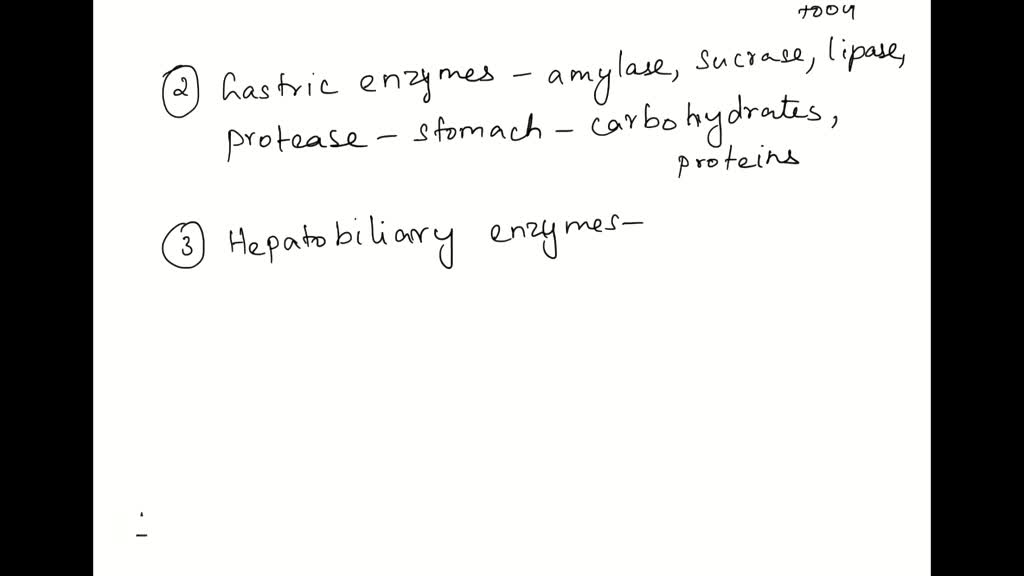 ② Gastric enzymes - amylase, sucrase, lipase,
protease - stomach - carbohydrates,
proteins
③ Hepatobiliary enzymes-